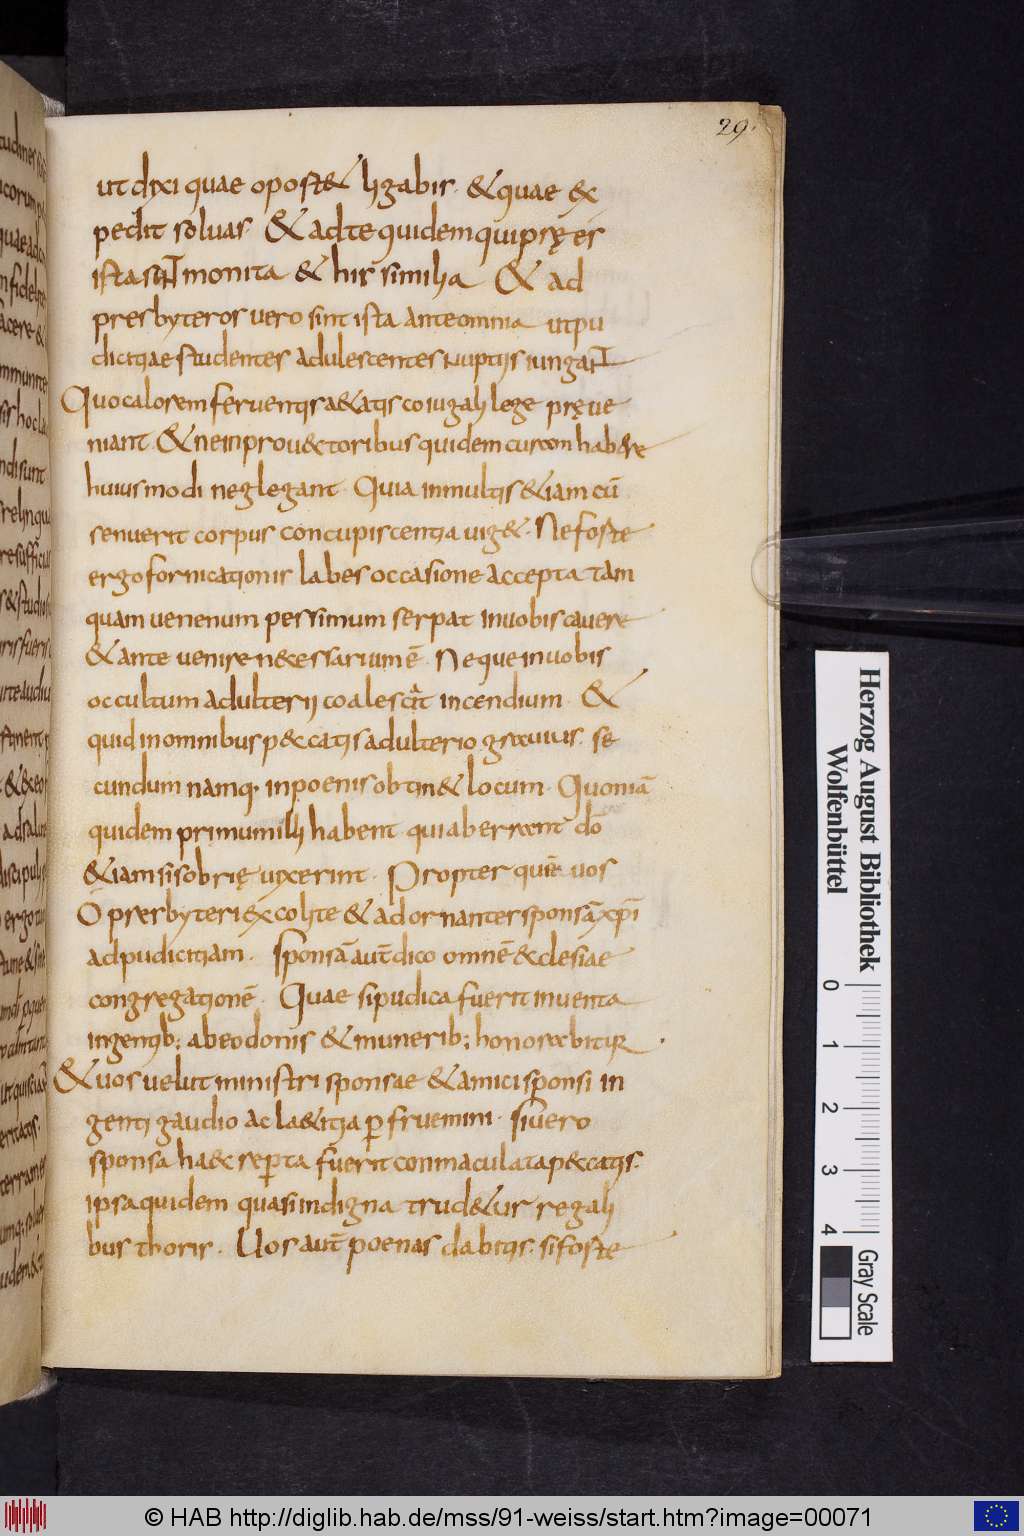 29.
ut dixi quae oport& ligabis. & quae ex
pedit soluas. & ad te quidem qui pręes
ista sunt monita & his similia & ad
presbyteros uero sint ista ante omnia ut pu
dicitiae studentes adulescentes nuptiis iungant
Quo calorem feruentis a&atis coiugali lege pręue
niant. & ne in prou&toribus quidem curam habere
huiusmodi neglegant. Quia in multis &iam cū
senuerit corpus concupiscentia uig&. Ne forte
ergo fornicationis labes occasione accepta tam
quam uenenum pessimum serpat in uobis cauere
& ante uenire n&essarium ē. Neque in uobis
occultum adulterii coalescat incendium. &
quid in omnibus p&catis adulterio grauius. se
cundum namq; in poenis obtin& locum. Quoniā
quidem primum illi habent qui aberrant dō
&iam si sobrię uixerint. Propter quē uos
O presbyteri excolite & adornanter sponsā xp̄i
ad pudicitiam. sponsā aut̄ dico omnē &clesiae
congregationē. Quae si pudica fuerit inuenta
ingentib; ab eo donis & munerib; honorabitur.
& uos uelut ministri sponsae & amici sponsi in
genti gaudio ac la&itia p̄fruemini. si uero
sponsa haec rep̄ta fuerit conmaculata p&catis.
ipsa quidem quasi indigna trud&ur regali
bus thoris. Uos aut̄ poenas dabitis. si forte
Herzog August Bibliothek
Wolfenbüttel
0 1 2 3 4
Gray Scale
© HAB http://diglib.hab.de/mss/91-weiss/start.htm?image=00071